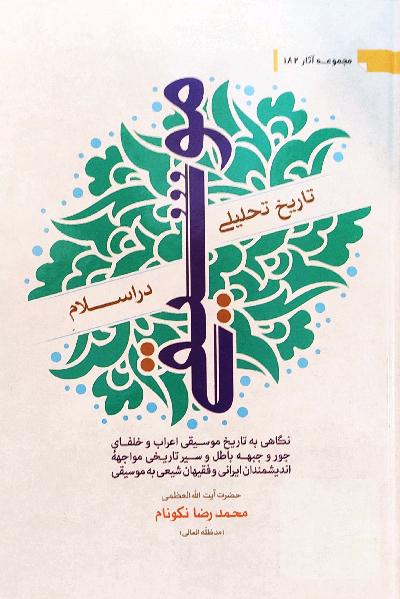 مجموعه آثار ۱۸۲
تاریخ تحلیلی
موسیقی
در اسلام
نگاهی به تاریخ موسیقی اعراب و خلفای
جور و جبهه باطل و سیر تاریخی مواجههٔ
اندیشمندان ایرانی و فقیهان شیعی به موسیقی
حضرت آیت الله العظمی
محمد رضا نکونام
(مدظله العالی)